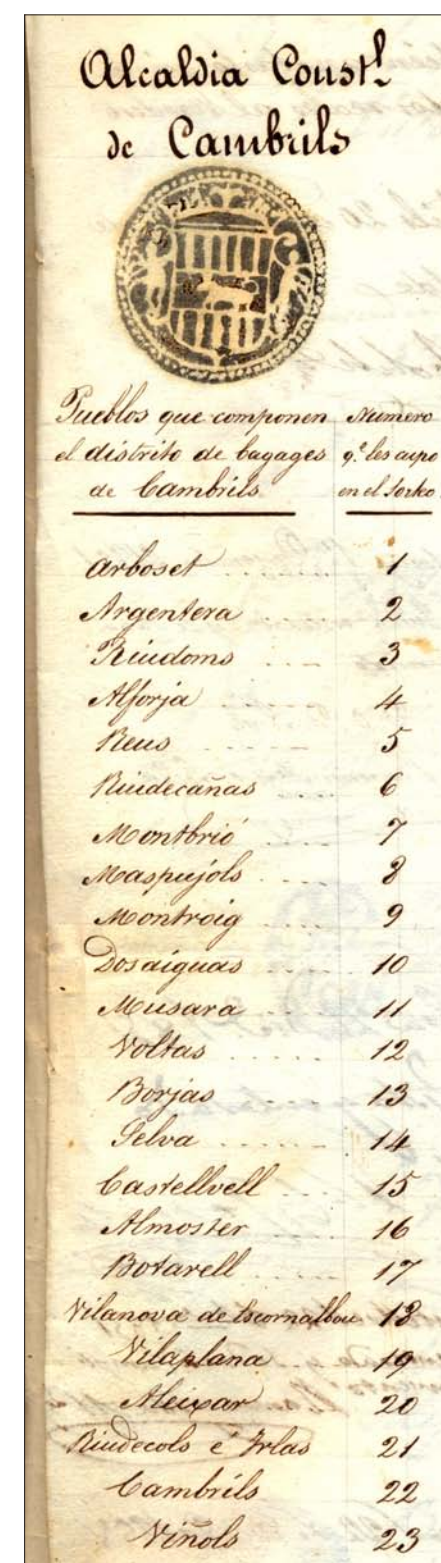 Alcaldia Constl.
de Cambrils
Pueblos que componen
el distrito de bagages
de Cambrils
Numero
q.e les cupo
en el Sorteo
Arboset ....... 1
Argentera ..... 2
Riudoms .... 3
Alforja ...... 4
Reus ...... 5
Riudecañas .... 6
Montbrió ..... 7
Maspujóls ..... 8
Montroig ..... 9
Dosaiguas ..... 10
Musara ..... 11
Voltas ...... 12
Borjas ..... 13
Selva ....... 14
Castellvell .... 15
Almoster .... 16
Botarell ..... 17
Vilanova de Escornalbou 18
Vilaplana 19
Aleixar 20
Riudecols é Irlas 21
Cambrils 22
Viñols 23